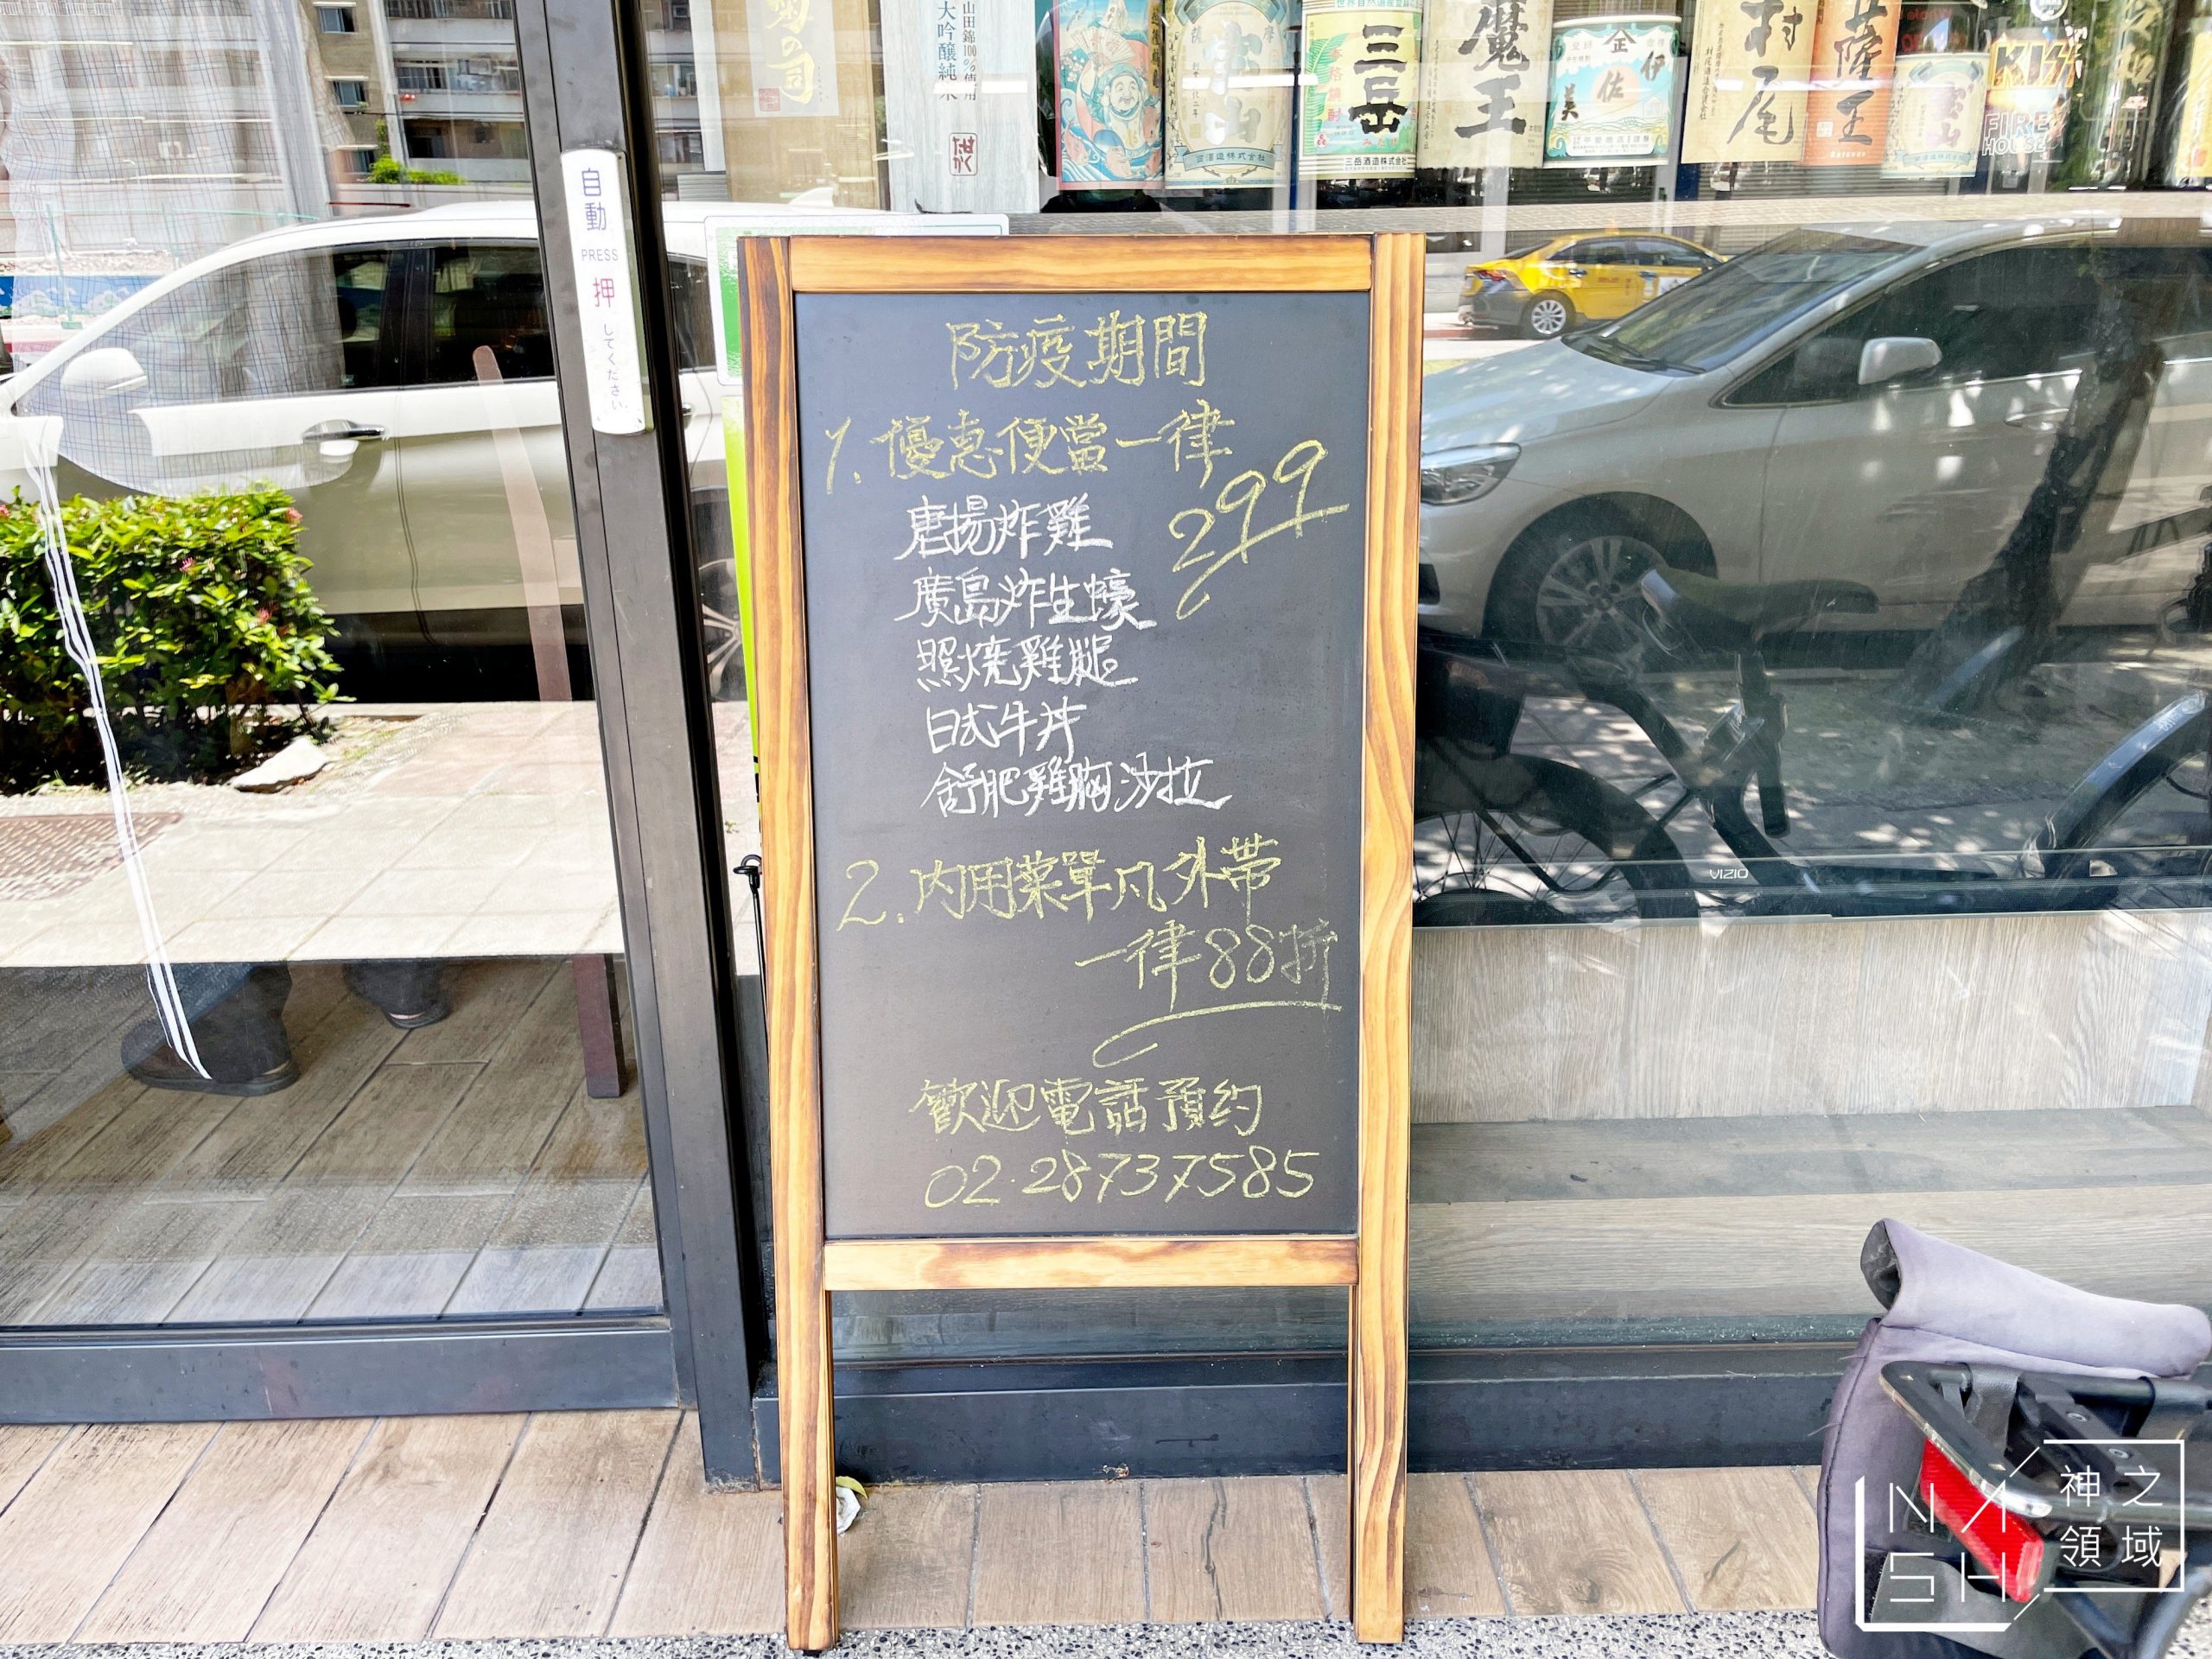 山田錦100%使用
大吟醸純米
三岳
三岳酒造株式会社
魔王
佐
伊
美
村尾
薩
王
KISS
FIRE
HOUSE
自動
PRESS
押
してください
防疫期間
1.優惠便當一律
299
唐揚炸雞
廣島炸生蠔
照燒雞腿
日式牛丼
舒肥雞胸沙拉
2.內用菜單凡外帶
一律88折
歡迎電話預约
02-28737585
VIZIO
NASH
神之
領域